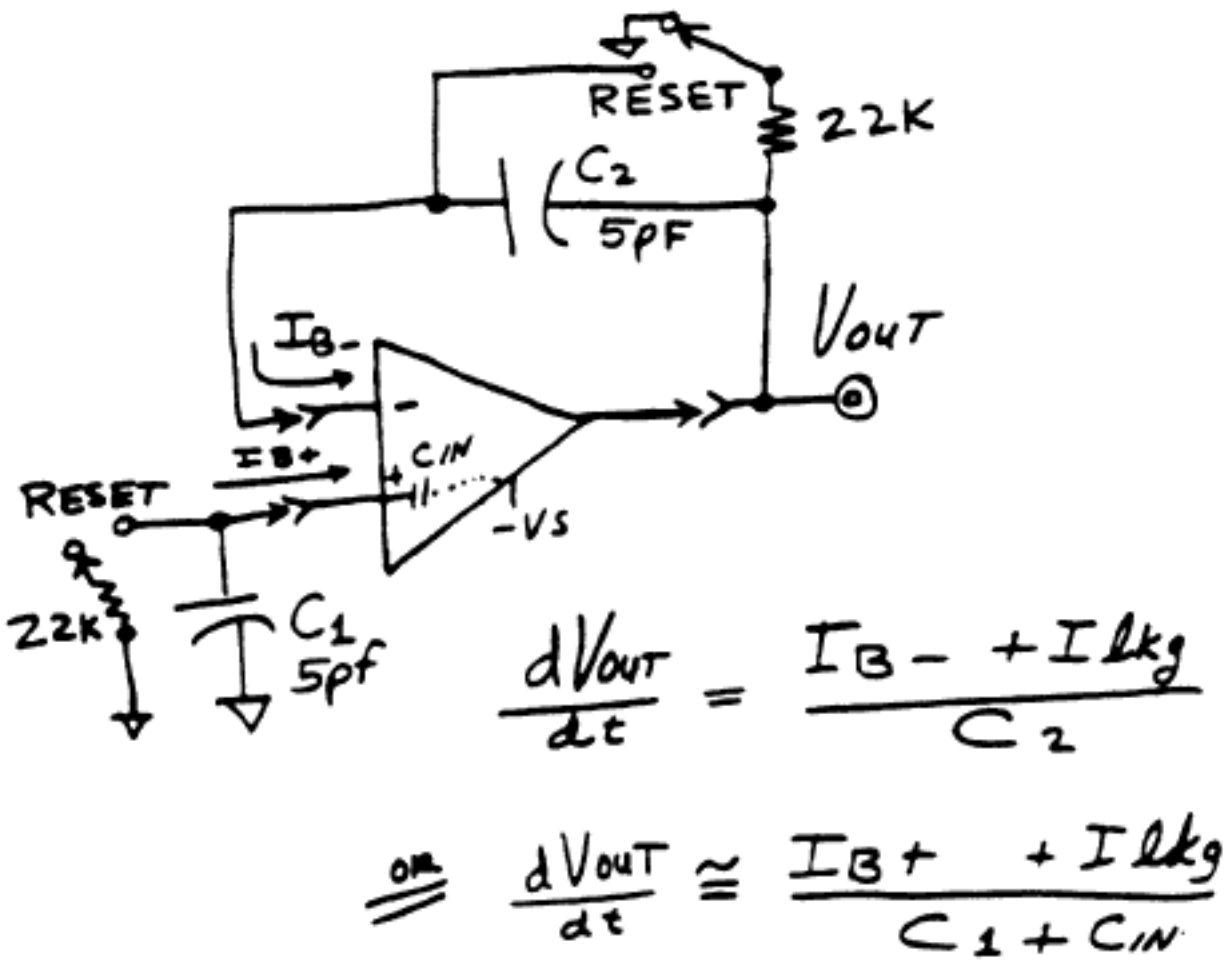 RESET
22K
C2
5pF
IB-
VOUT
-
IB+
+
CIN
RESET
-VS
22K
C1
5pf
dVOUT/dt = IB- + Ilkg/C2
OR dVOUT/dt ≅ IB+ + Ilkg/C1 + CIN